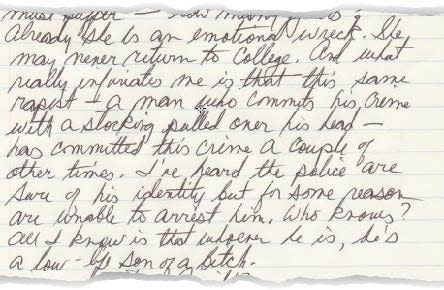 must suffer — How many is ?
Already she is an emotional wreck. She
may never return to College. And what
really infuriates me is that this same
rapist — a man who commits his crime
with a stocking pulled over his head —
has committed this crime a couple of
other times. I've heard the police are
sure of his identity but for some reason
are unable to arrest him. Who knows?
All I know is that whoever he is, he's
a low-life son of a bitch.